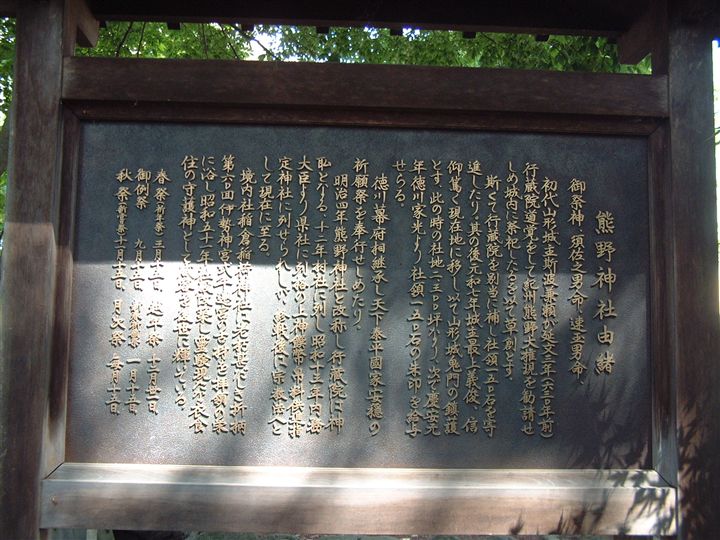 熊野神社由緒
御祭神、須佐之男命、速玉男命、
初代山形城主斯波兼頼が延文三年(六三年前)
行蔵院道誉をして紀州熊野大権現を勧請せ
しめ城内に祭祀したるを以て草創とす。
斯くて行蔵院を別当に補し社領一五〇石を寄
進したり。其の後元和八年城主最上義俊、信
仰篤く現在地に移し以て山形城鬼門の鎮護
とす。此の時の社地一二三〇坪なり。次で慶安元
年徳川家光より社領一五〇石の朱印を給与
せらる。
徳川幕府相継承し天下泰平国家安穏の
祈願祭を奉行せしめたり。
明治四年熊野神社と改称し行蔵院は神
職となる。十二年村社に列し昭和十三年内務
大臣より県社に列格の上神饌幣帛料供進指
定神社に列せられしが、終戦後に宗教法人と
して現在に至る。
境内社稲倉稲荷神社は老朽甚だしき折柄
第六〇回伊勢神宮式年遷宮の古材を拝領の栄
に浴し昭和五十一年
住の守護神として
春祭(祈年祭)三月十五日
御例祭 九月十五日
秋祭(新嘗祭)十一月十五日、月次祭 毎月十五日、